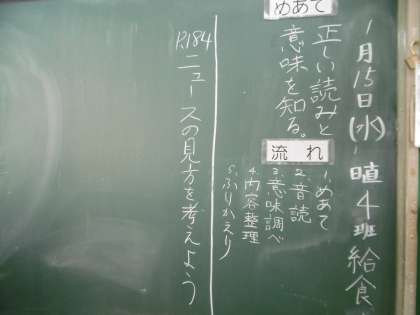 1月15日(水)
日直4班給食
めあて
正しい読みと
意味を知る。
流れ
1.めあて
2.音読
3.意味調べ
4.内容整理
5.ふりかえり
P.184
ニュースの見方を考えよう